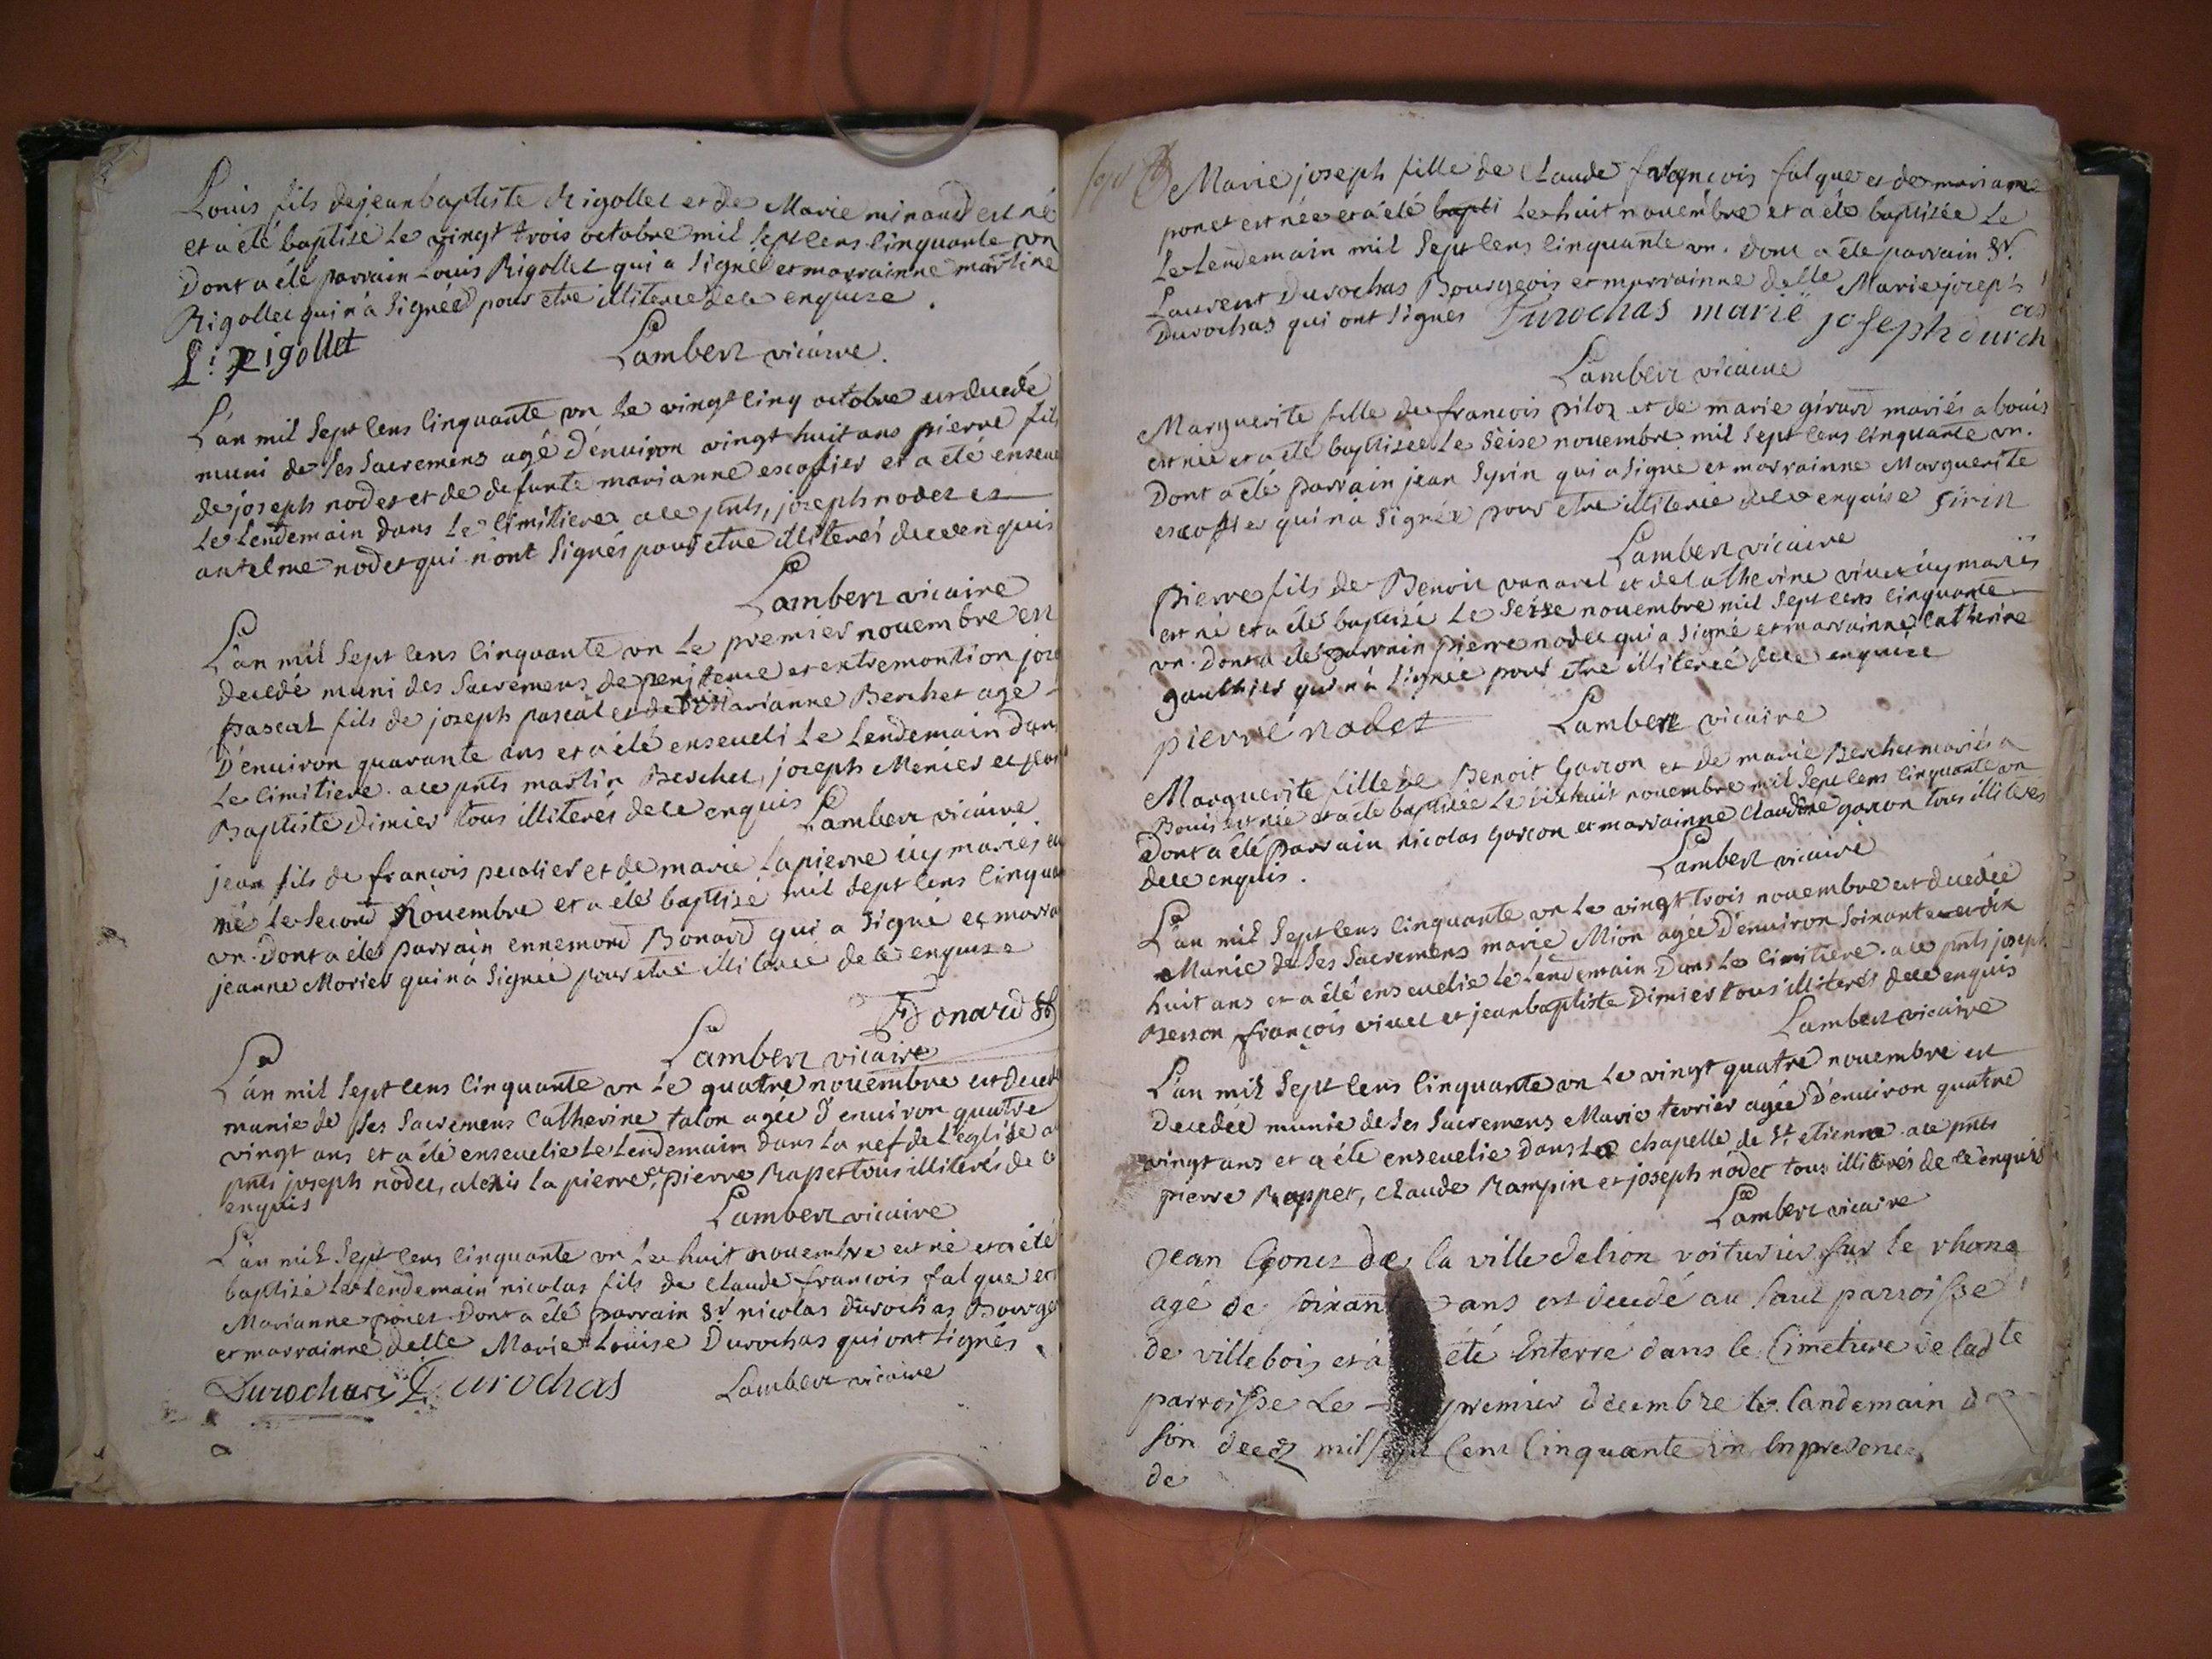 Louis fils de jean baptiste Rigollet et de Marie minaud est né
et a été baptisé le vingt trois octobre mil sept cens cinquante un
Dont a été parrain Louis Rigollet qui a signé et marrainne martine
Rigollet qui n'a signéé pour etre illiterée de ce enquise.
L: Rigollet Lambert vicaire.
L'an mil sept cens cinquante un le vingt cinq octobre est decedé
muni de ses sacremens agé d'environ vingt huit ans pierre fils
de joseph nodet et de defunte marianne escofier et a été enseve
le lendemain dans le cimitiere a ce pnts, joseph nodet et
antelme nodet qui n'ont signés pour etre illiterés de ce enquis
Lambert vicaire
L'an mil sept cens cinquante un le premier novembre est
decedé muni des sacremens de penitence et extremontion jose
pascal fils de joseph pascal et de Marianne Berchet agé
D'environ quarante ans et a été enseveli le lendemain dans
le cimitiere. a ce pnts martin Berchet, joseph Menier et jean
Baptiste Dimier tous illiterés de ce enquis Lambert vicaire
jean fils de francois pecolier et de marie lapierre icy mariés est
né le second Novembre et a été baptisé mil sept cens cinquan
un. dont a été parrain ennemond Bonard qui a signé et marra
jeanne Morier qui n'a signée pour etre illiterée de ce enquise
Bonard
Lambert vicaire
L'an mil sept cens cinquante un le quatre novembre est decedé
munie de ses sacremens Catherine talon agée d'environ quatre
vingt ans et a été ensevelie le lendemain dans la nef de l'eglise a
pnts joseph nodet, alexis la pierre, pierre Rapet tous illiterés de ce
enquis Lambert vicaire
L'an mil sept cens cinquante un le huit novembre est né et a été
baptisé le lendemain nicolas fils de Claude francois falque et
Marianne ponet. Dont a été parrain Sr. nicolas durochas Bourge
et marrainne delle Marie Louise Durochas qui ont signés.
Durochas Durochas Lambert vicaire
Marie joseph fille de Claude francois falque et de mariane
ponet est née et a été bapti le huit novembre et a été baptisée le
le lendemain mil sept cens cinquante un. Dont a été parrain Sr.
Laurent Durochas Bourgeois et marrainne delle Marie joseph
Durochas qui ont signés Durochas marie joseph duroch
as
Lambert vicaire
Marguerite fille de francois piloz et de marie girard mariés a bouis
est née et a été baptisée le seise novembre mil sept cens cinquante un.
Dont a été parrain jean Syrin qui a signé et marrainne Marguerite
escoffier qui n'a signée pour etre illiterée de ce enquise Sirin
Lambert vicaire
Pierre fils de Benoit vanarel et de Catherine vivet icy mariés
est né et a été baptisé le seize novembre mil sept cens cinquante
un. Dont a été parrain pierre nodet qui a signé et marrainne Catherine
gauthier qui n'a signée pour etre illiterée de ce enquise
pierre nodet Lambert vicaire
Marguerite fille de Benoit Garcon et de marie Berchet mariés a
Bouis est née et a été baptisée le dixhuit novembre mil sept cens cinquante un
Dont a été parrain nicolas Garcon et marrainne Claudine garcon tous illiterés
de ce enquis. Lambert vicaire
L'an mil sept cens cinquante un le vingt trois novembre est decedée
Munie de ses sacremens marie Mion agée d'environ soixante et dix
huit ans et a été ensevelie le lendemain dans le cimitiere. a ce pnts joseph
Berson françois vivet et jean baptiste Dimier tous illiterés de ce enquis
Lambert vicaire
L'an mil sept cens cinquante un le vingt quatre novembre est
decedée munie de ses sacremens Marie terrier agée d'environ quatre
vingt ans et a été ensevelie dans la chapelle de St. etienne. a ce pnts
pierre Rappet, Claude Rampin et joseph nodet tous illiterés de ce enquis
Lambert vicaire
Jean Gonet de la ville de lion voiturier sur le rhone
agé de ans est decedé au saut parroisse
de villebois et a été enterré dans le cimetiere de ladte
parroisse le premier decembre le landemain de
son decez mil sept cent cinquante un en presence
de